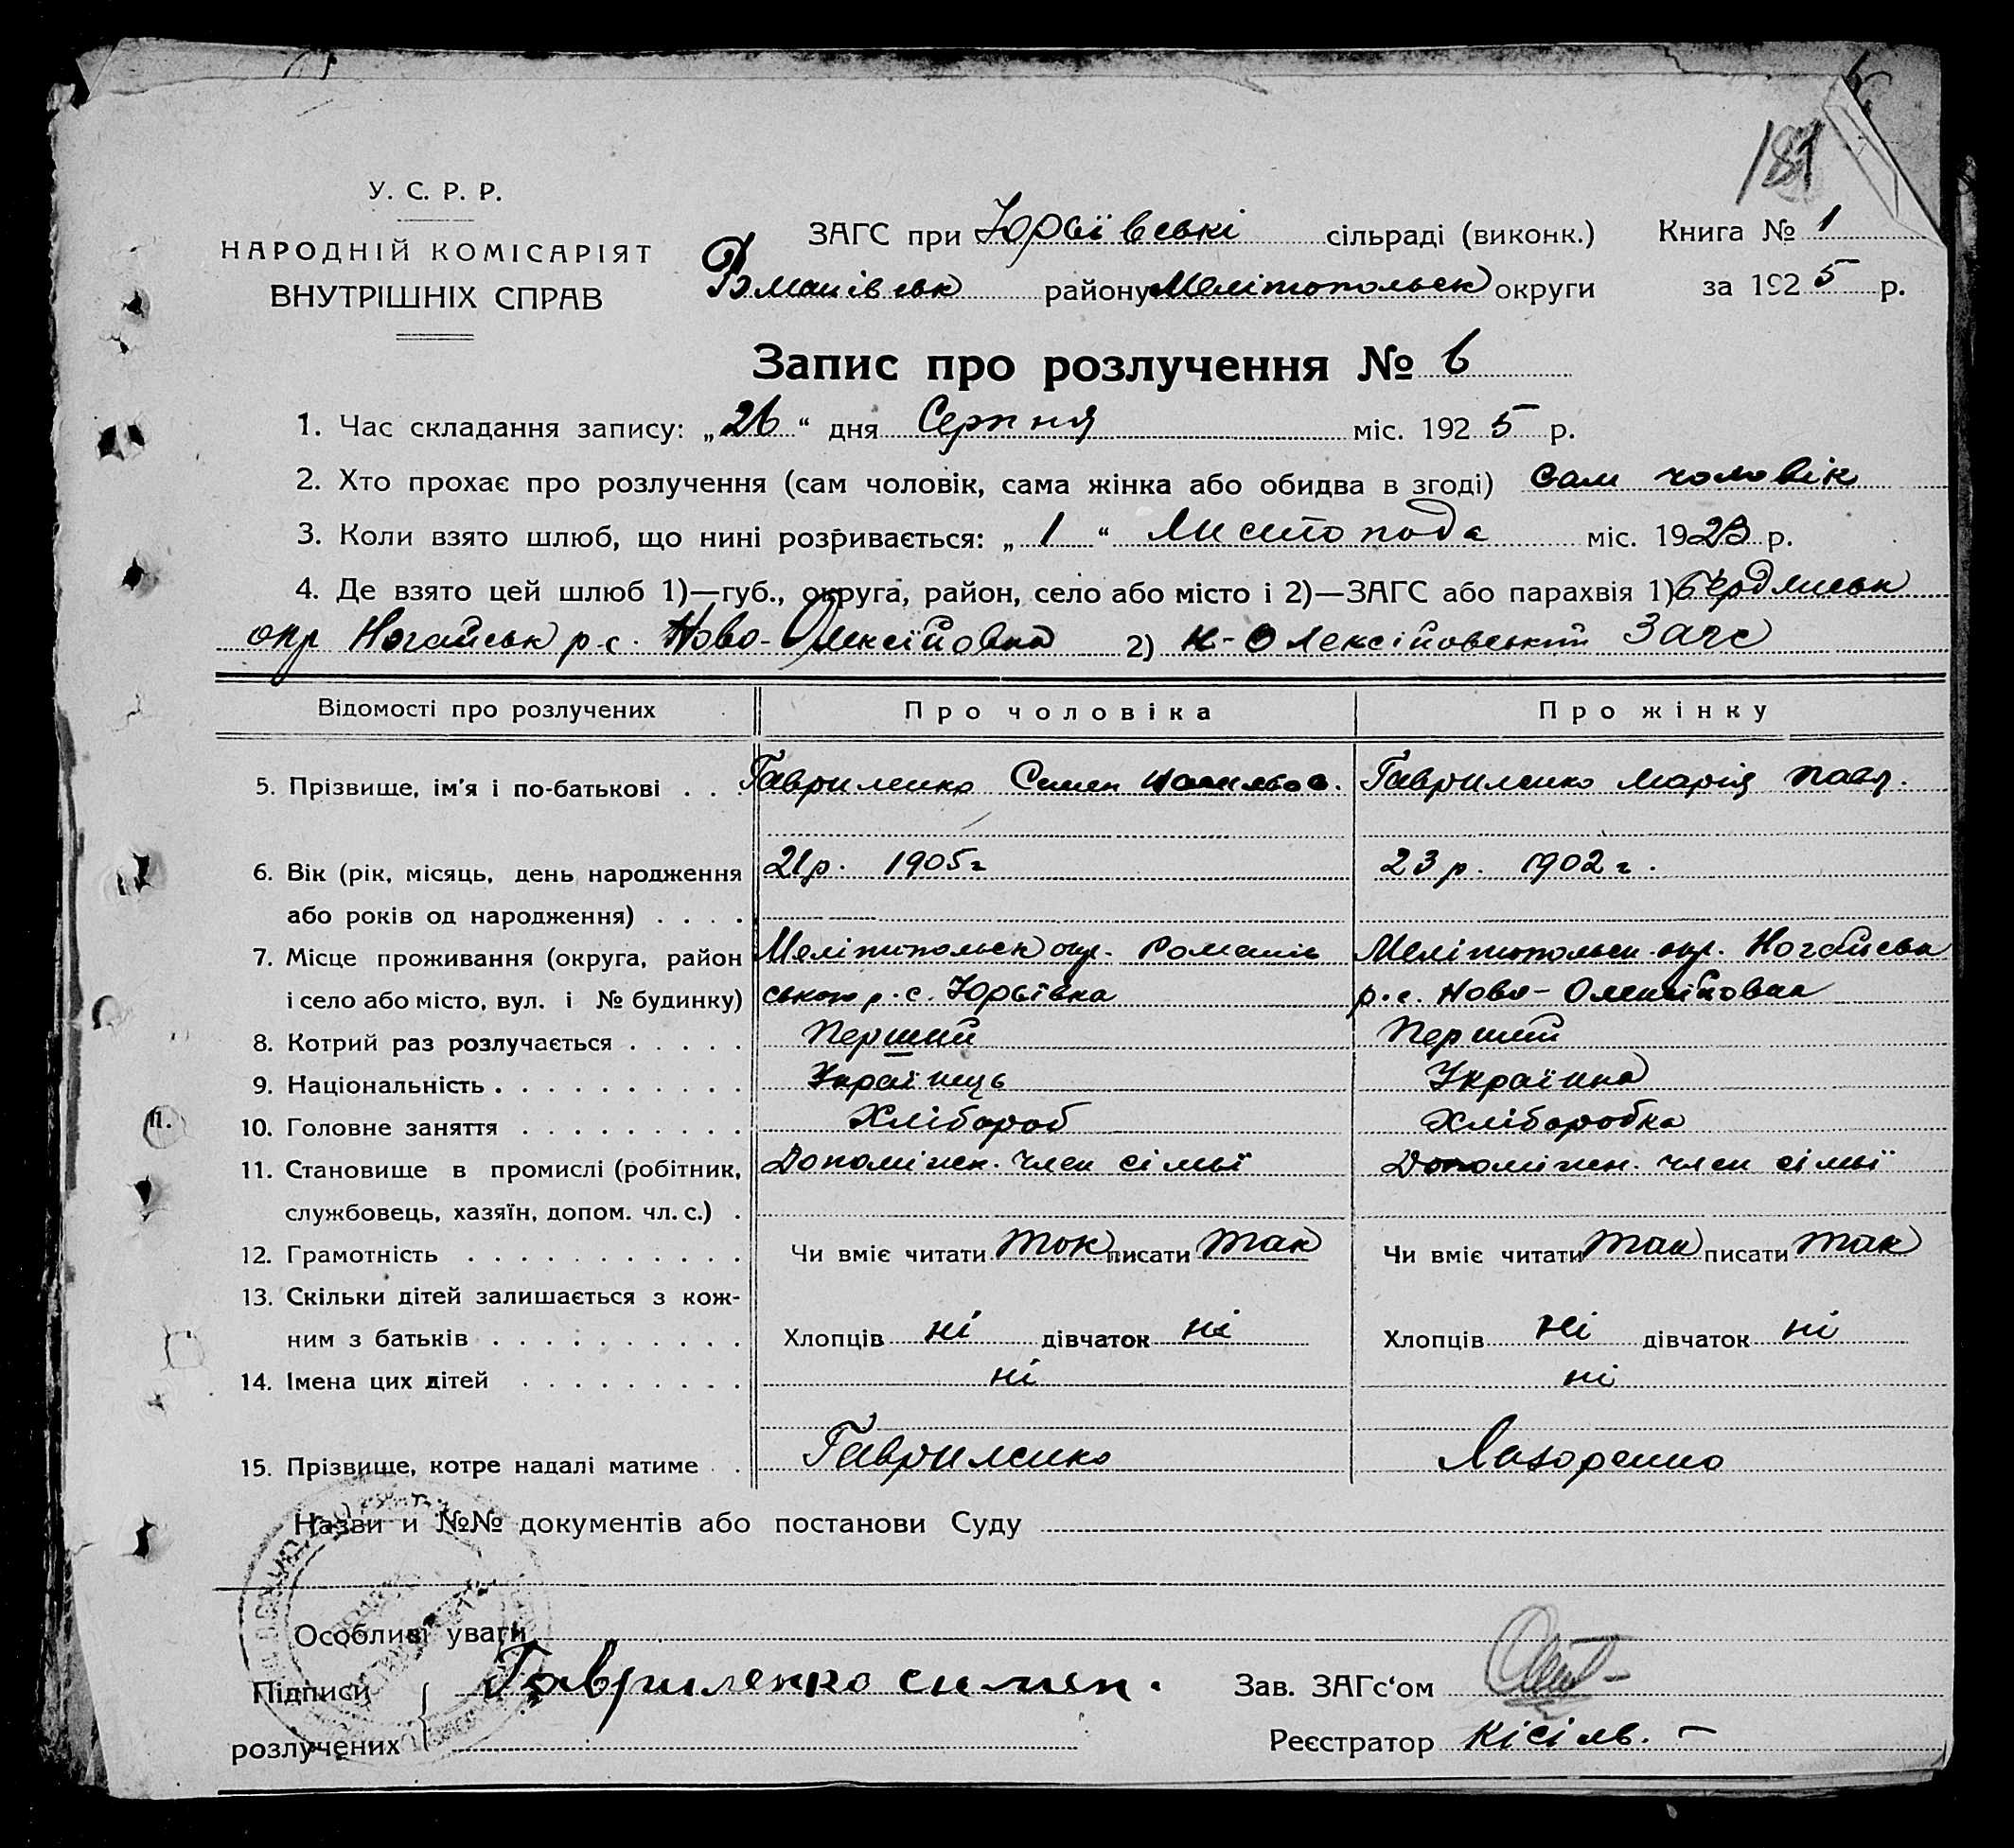 181
У. С. Р. Р.
НАРОДНІЙ КОМІСАРІЯТ
ВНУТРІШНІХ СПРАВ
ЗАГС при Юрѣївські сільраді (виконк.) Книга № 1
району Мелітопольськ округи за 1925 р.
Запис про розлучення № 6
1. Час складання запису: „26“ дня Серпня міс. 1925 р.
2. Хто прохає про розлучення (сам чоловік, сама жінка або обидва в згоді) сам чоловік
3. Коли взято шлюб, що нині розривається: „1“ Листопада міс. 1923 р.
4. Де взято цей шлюб 1)—губ., округа, район, село або місто і 2)—ЗАГС або парахвія 1) Бердянськ
окр Ногайськ р-с. Ново-Олексійовка 2) Н-Олексійовський Загс
Відомості про розлучених Про чоловіка Про жінку
5. Прізвище, ім’я і по-батькові . . Гавриленко Семен Гавриленко Марія Павл.
6. Вік (рік, місяць, день народження 21р. 1905г 23р. 1902г.
або років од народження) . . . .
7. Місце проживання (округа, район Мелітопольськ окр. Романів Мелітопольськ. окр. Ногайськ
і село або місто, вул. і № будинку) ською р. с. Юрьївка р. с. Ново-Олексійовка
8. Котрий раз розлучається . . . . . Перший Перший
9. Національність . . . . . . . . . . Українець Українка
10. Головне заняття . . . . . . . . . Хлібороб Хліборобка
11. Становище в промислі (робітник, Допоміжн. член сімьї Допоміжн. член сімьї
службовець, хазяїн, допом. чл. с.) .
12. Грамотність . . . . . . . . . . . Чи вміє читати так писати так Чи вміє читати так писати так
13. Скільки дітей залишається з кож-
ним з батьків . . . . . . . . . . Хлопців ні дівчаток ні Хлопців ні дівчаток ні
14. Імена цих дітей . . . . . . . . . ні ні
15. Прізвище, котре надалі матиме . . Гавриленко Лазоренко
Назви и №№ документів або постанови Суду
Особливі уваги
Підписи Гавриленко симен. Зав. ЗАГс‘ом
розлучених Реєстратор Кісіль. –